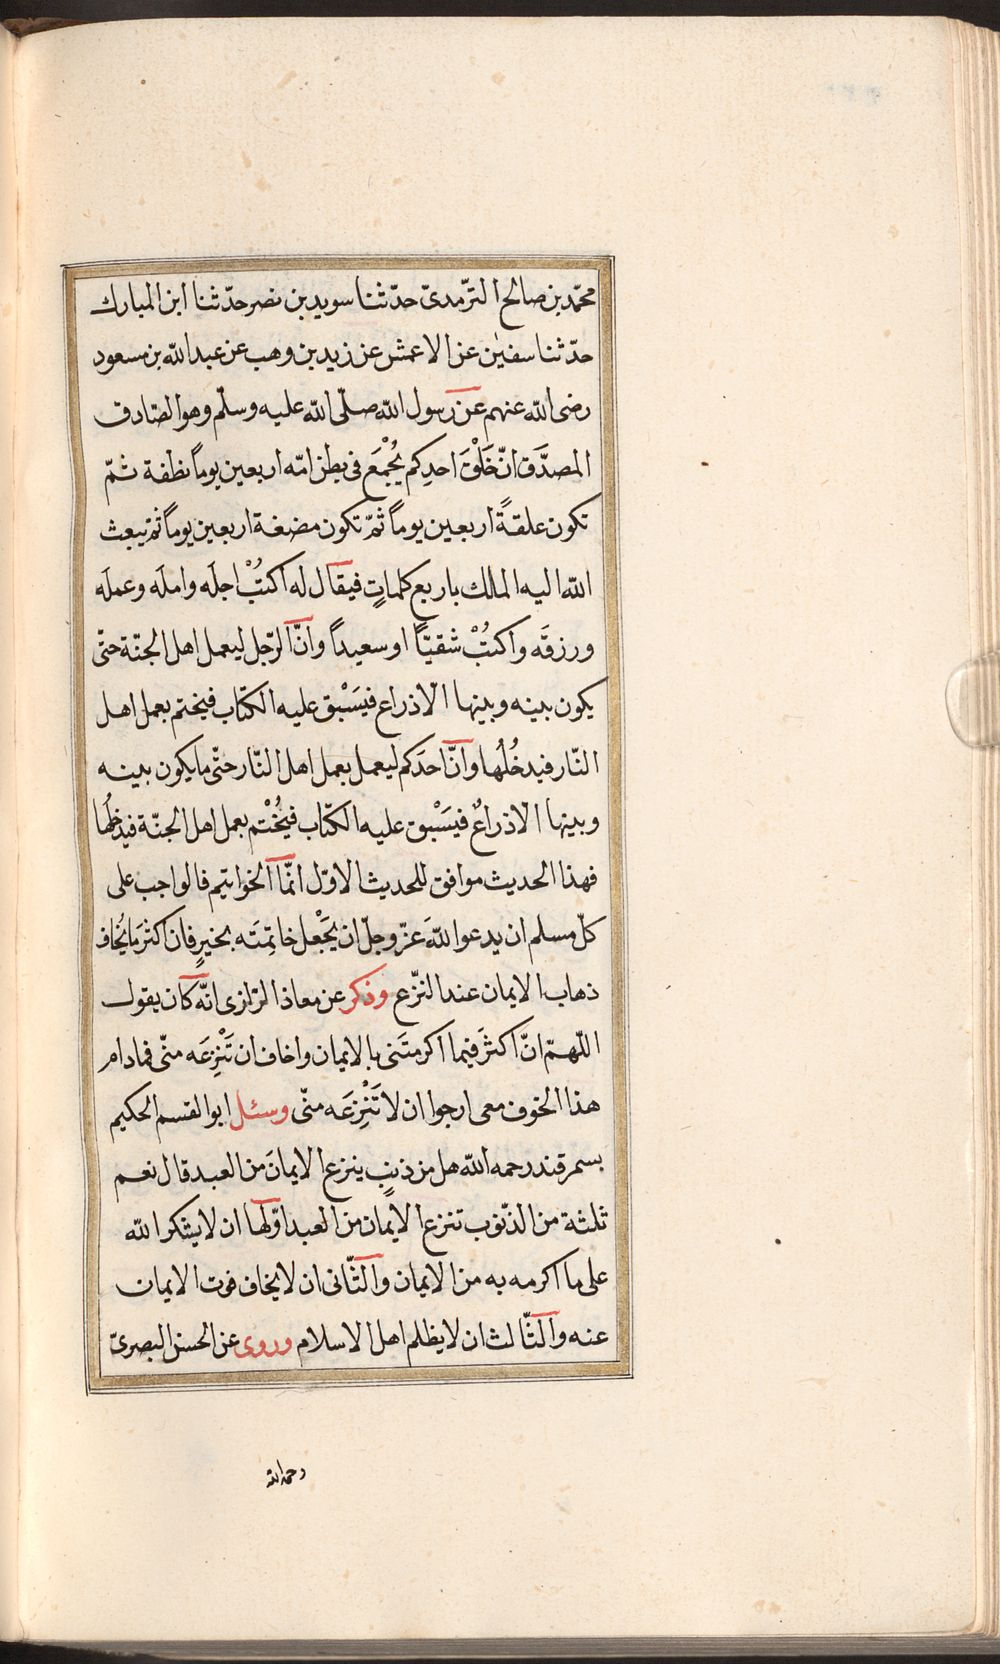 محمّد بن صالح الترّمدىّ حدّثنا سويد بن نصر حدّثنا ابن المبارك
حدّثنا سفيٰن عن الاعمش عن زيد بن وهب عن عبد الله بن مسعود
رضى الله عنهم عن رسول الله صلّى الله عليه وسلّم وهو الصّادق
المصدَّق انّ خَلْقَ احدِكم يُجْمَع فى بطن امّه اربعين يوماً نطفة ثمّ
تكون علقةً اربعين يوماً ثمّ تكون مضغة اربعين يوماً ثم يبعث
الله اليه الملك باربع كلماتٍ فيقال له اكتُبْ اجلَه واملَه وعملَه
ورزقَه واكتُبْ شقيّاً اوسعيداً وانّ الرّجل ليعمل اهل الجنّة حتّى
يكون بينه وبينها الاذراع فيَسْبق عليه الكتّاب فيختم بعمل اهل
النّار فيدخُلُها وانّ احدَكم ليعمل بعمل اهل النّار حتّى مايكون بينه
وبينها الاذراعٌ فيَسْبق عليه الكتّاب فيُخْتم بعمل اهل الجنّة فيدخلُها
فهذا الحديث موافق للحديث الاوّل انّما الخواتيم فالواجب على
كلّ مسلم ان يدعو اللهَ عزّ وجلّ ان يَجْعل خاتمِتَه بخيرٍ فان اكثر مَا يُخاف
ذهاب الايمان عند النّزع وذكر عن معاذ الرّازى انّه كان يقول
اللّهمّ انّ اكثرَ فيما اكرمتَنى بالايمان واخاف ان تَنْزِعَه منّى فمادام
هذا الخوف معى ارجوا ان لا تَنْزِعَه منّى وسئل ابو القسم الحكيم
بسمرقند رحمه الله هل من ذنبٍ ينزع الايمانَ من العبد قال نعم
ثلثة من الذّنوب تنزع الايمان من العبد اوّلها ان لا يشكر الله
على ما اكرمه به من الايمان والثّانى ان لا يخاف فوت الايمان
عنه والثّالث ان لا يظلم اهل الاسلام وروى عن الحسن البصرىّ
رحمه الله